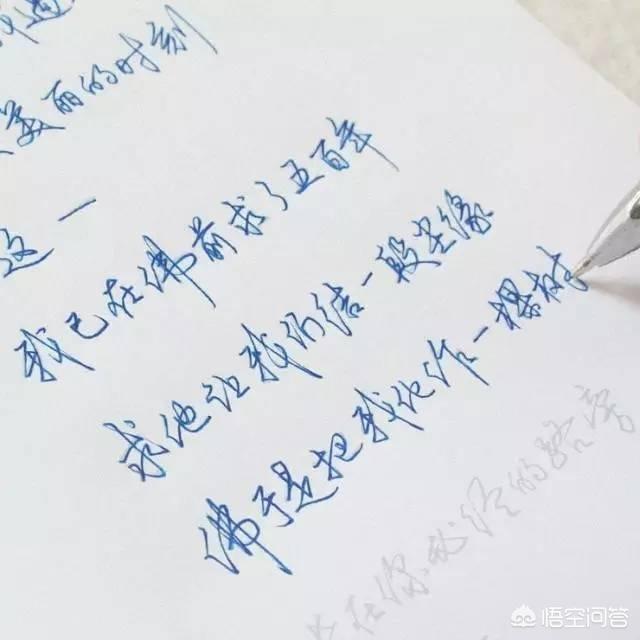 美丽的时刻
这一
我已在佛前求了五百年
求他让我们结一段尘缘
佛于是把我化作一棵树
在你必经的路旁
悟空问答